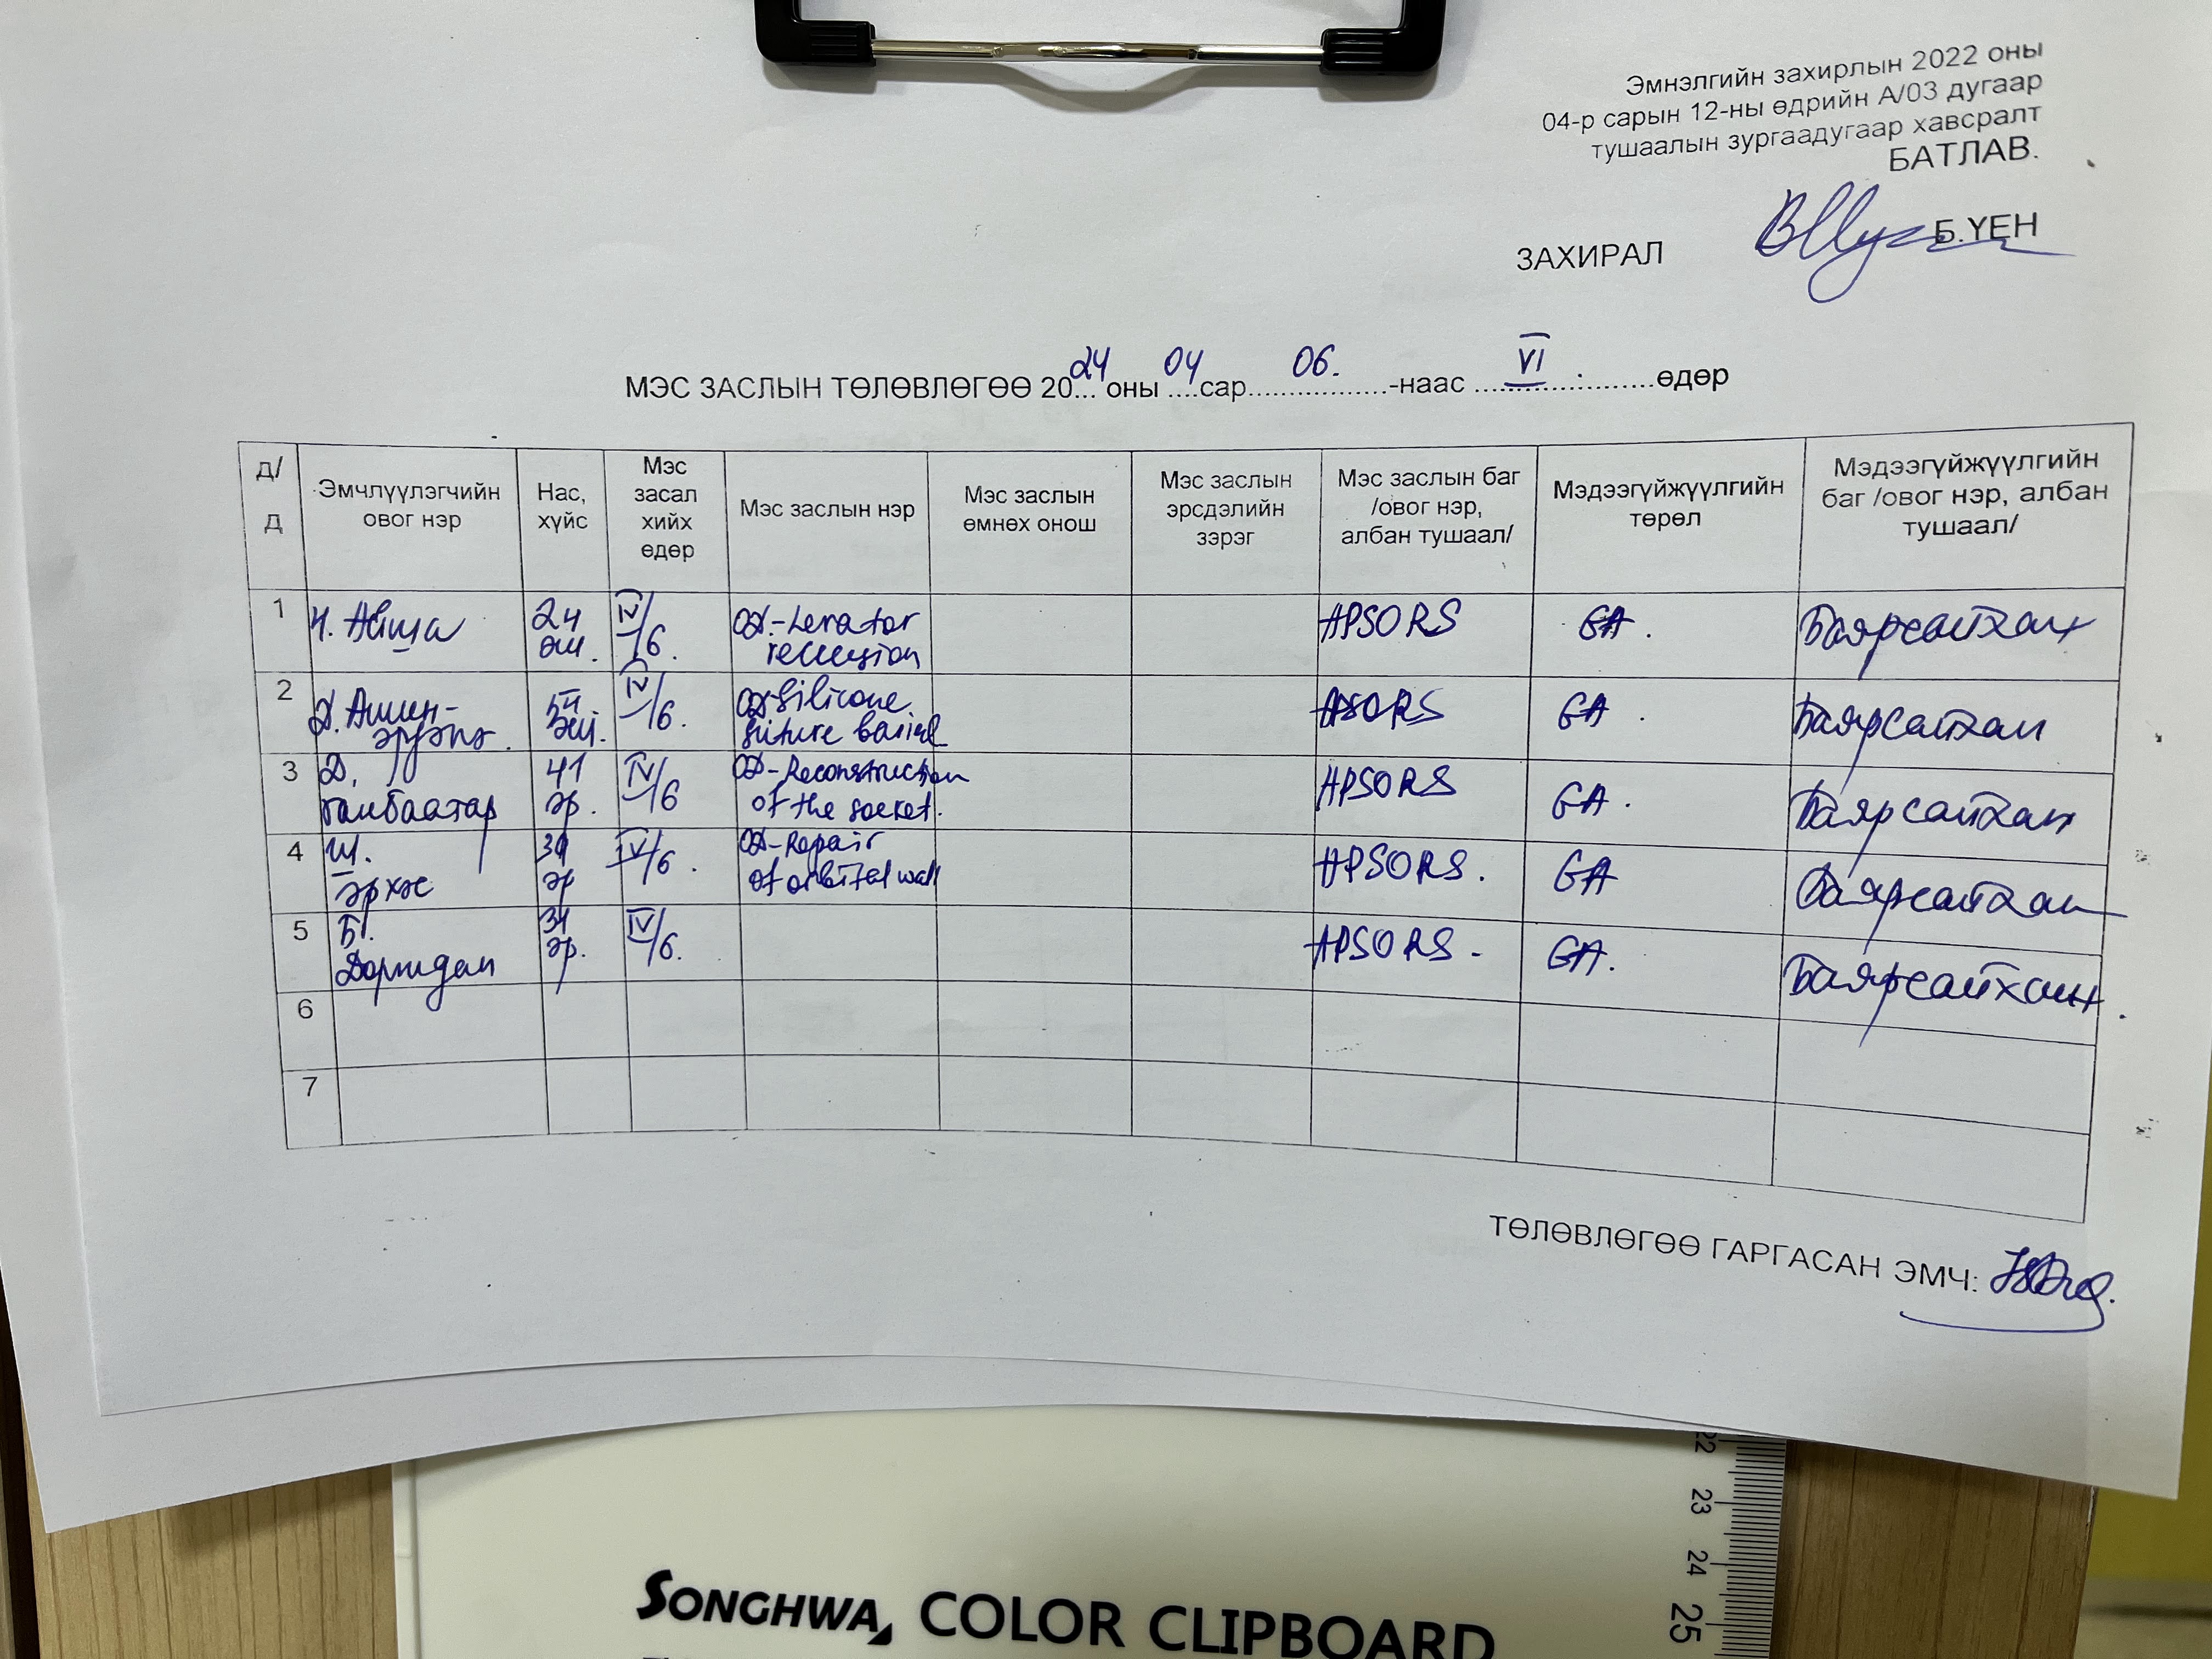 Эмнэлгийн захирлын 2022 оны
04-р сарын 12-ны өдрийн А/03 дугаар
тушаалын зургаадугаар хавсралт
БАТЛАВ.
ЗАХИРАЛ Б.ҮЕН
МЭС ЗАСЛЫН ТӨЛӨВЛӨГӨӨ 2024 оны 04 сар 06. -наас VI өдөр
Д/Д
Эмчлүүлэгчийн овог нэр
Нас, хүйс
Мэс засал хийх өдөр
Мэс заслын нэр
Мэс заслын өмнөх онош
Мэс заслын эрсдэлийн зэрэг
Мэс заслын баг /овог нэр, албан тушаал/
Мэдээгүйжүүлгийн төрөл
Мэдээгүйжүүлгийн баг /овог нэр, албан тушаал/
1 24 эм. IV/6. APSORS GA. Баярсайхан
recession
2 эм. IV/6. Silicone APSORS GA. Баярсайхан
suture
3 Д. 41 IV/6 Reconstruction APSORS GA. Баярсайхан
Ганбаатар эр. of the socket.
4 Ш. эр IV/6. Repair APSORS. GA Баярсайхан
of orbital wall
5 Б. эр. IV/6. APSORS. GA. Баярсайхан
6
7
ТӨЛӨВЛӨГӨӨ ГАРГАСАН ЭМЧ:
22
23
24
25
SONGHWA COLOR CLIPBOARD